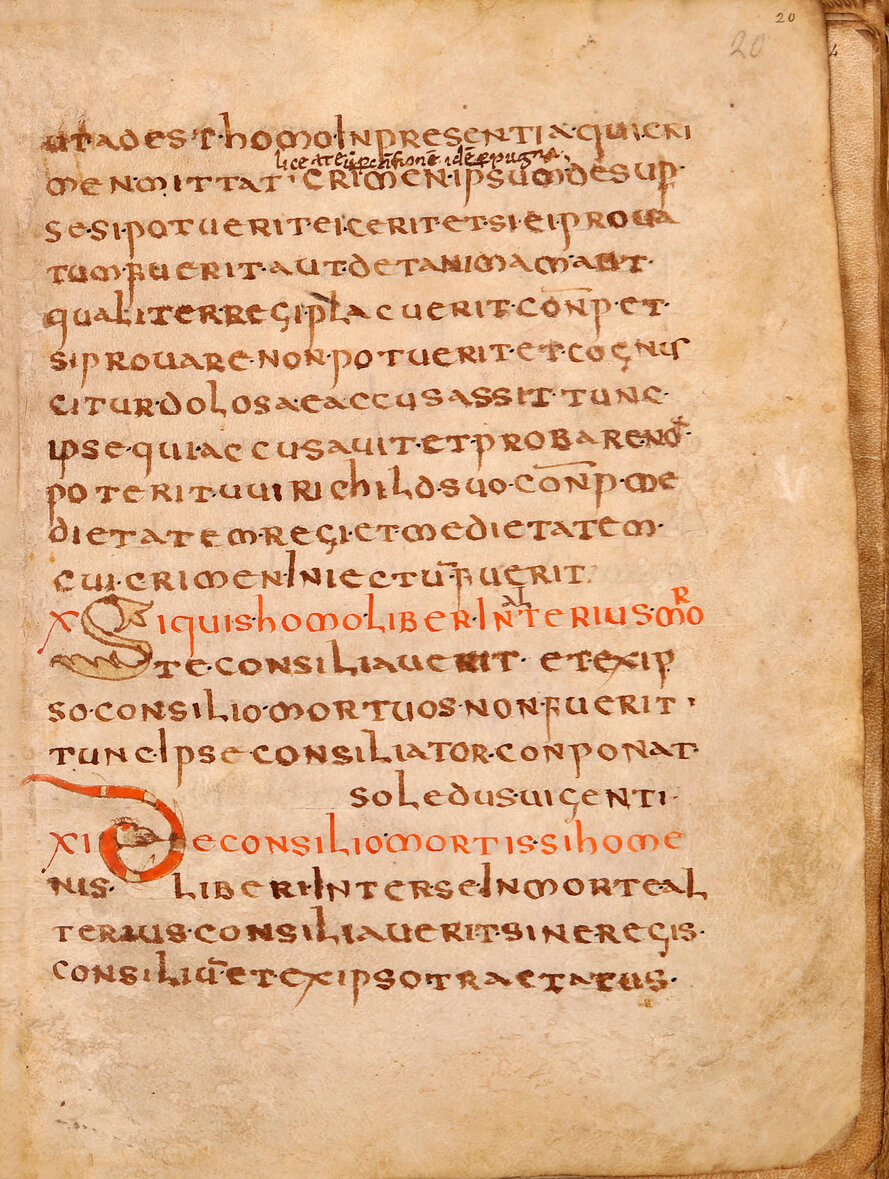 20
20
utadest homo inpresentia qui cri
liceat ei
men mittat crimen ipsum desup
se si potuerit eicerit et si ei proua
tum fuerit aut det animam aut
qualiter regi placuerit conp et
si prouare non potuerit et cognis
citur dolosae accusassit tunc
ipse qui accusauit et probare nō
poterit uuirichild suo conp me
dietatem regi et medietatem
cui crimen iniectū fuerit
x Siquis homo liber in alterius mor
te consiliauerit et ex ip
so consilio mortuos non fuerit
tunc ipse consiliator conponat
soledus uigenti
xi De consilio mortis si home
nis liberi inter se in morte al
terius consiliauerit sine regis
consiliū et ex ipso tractatus